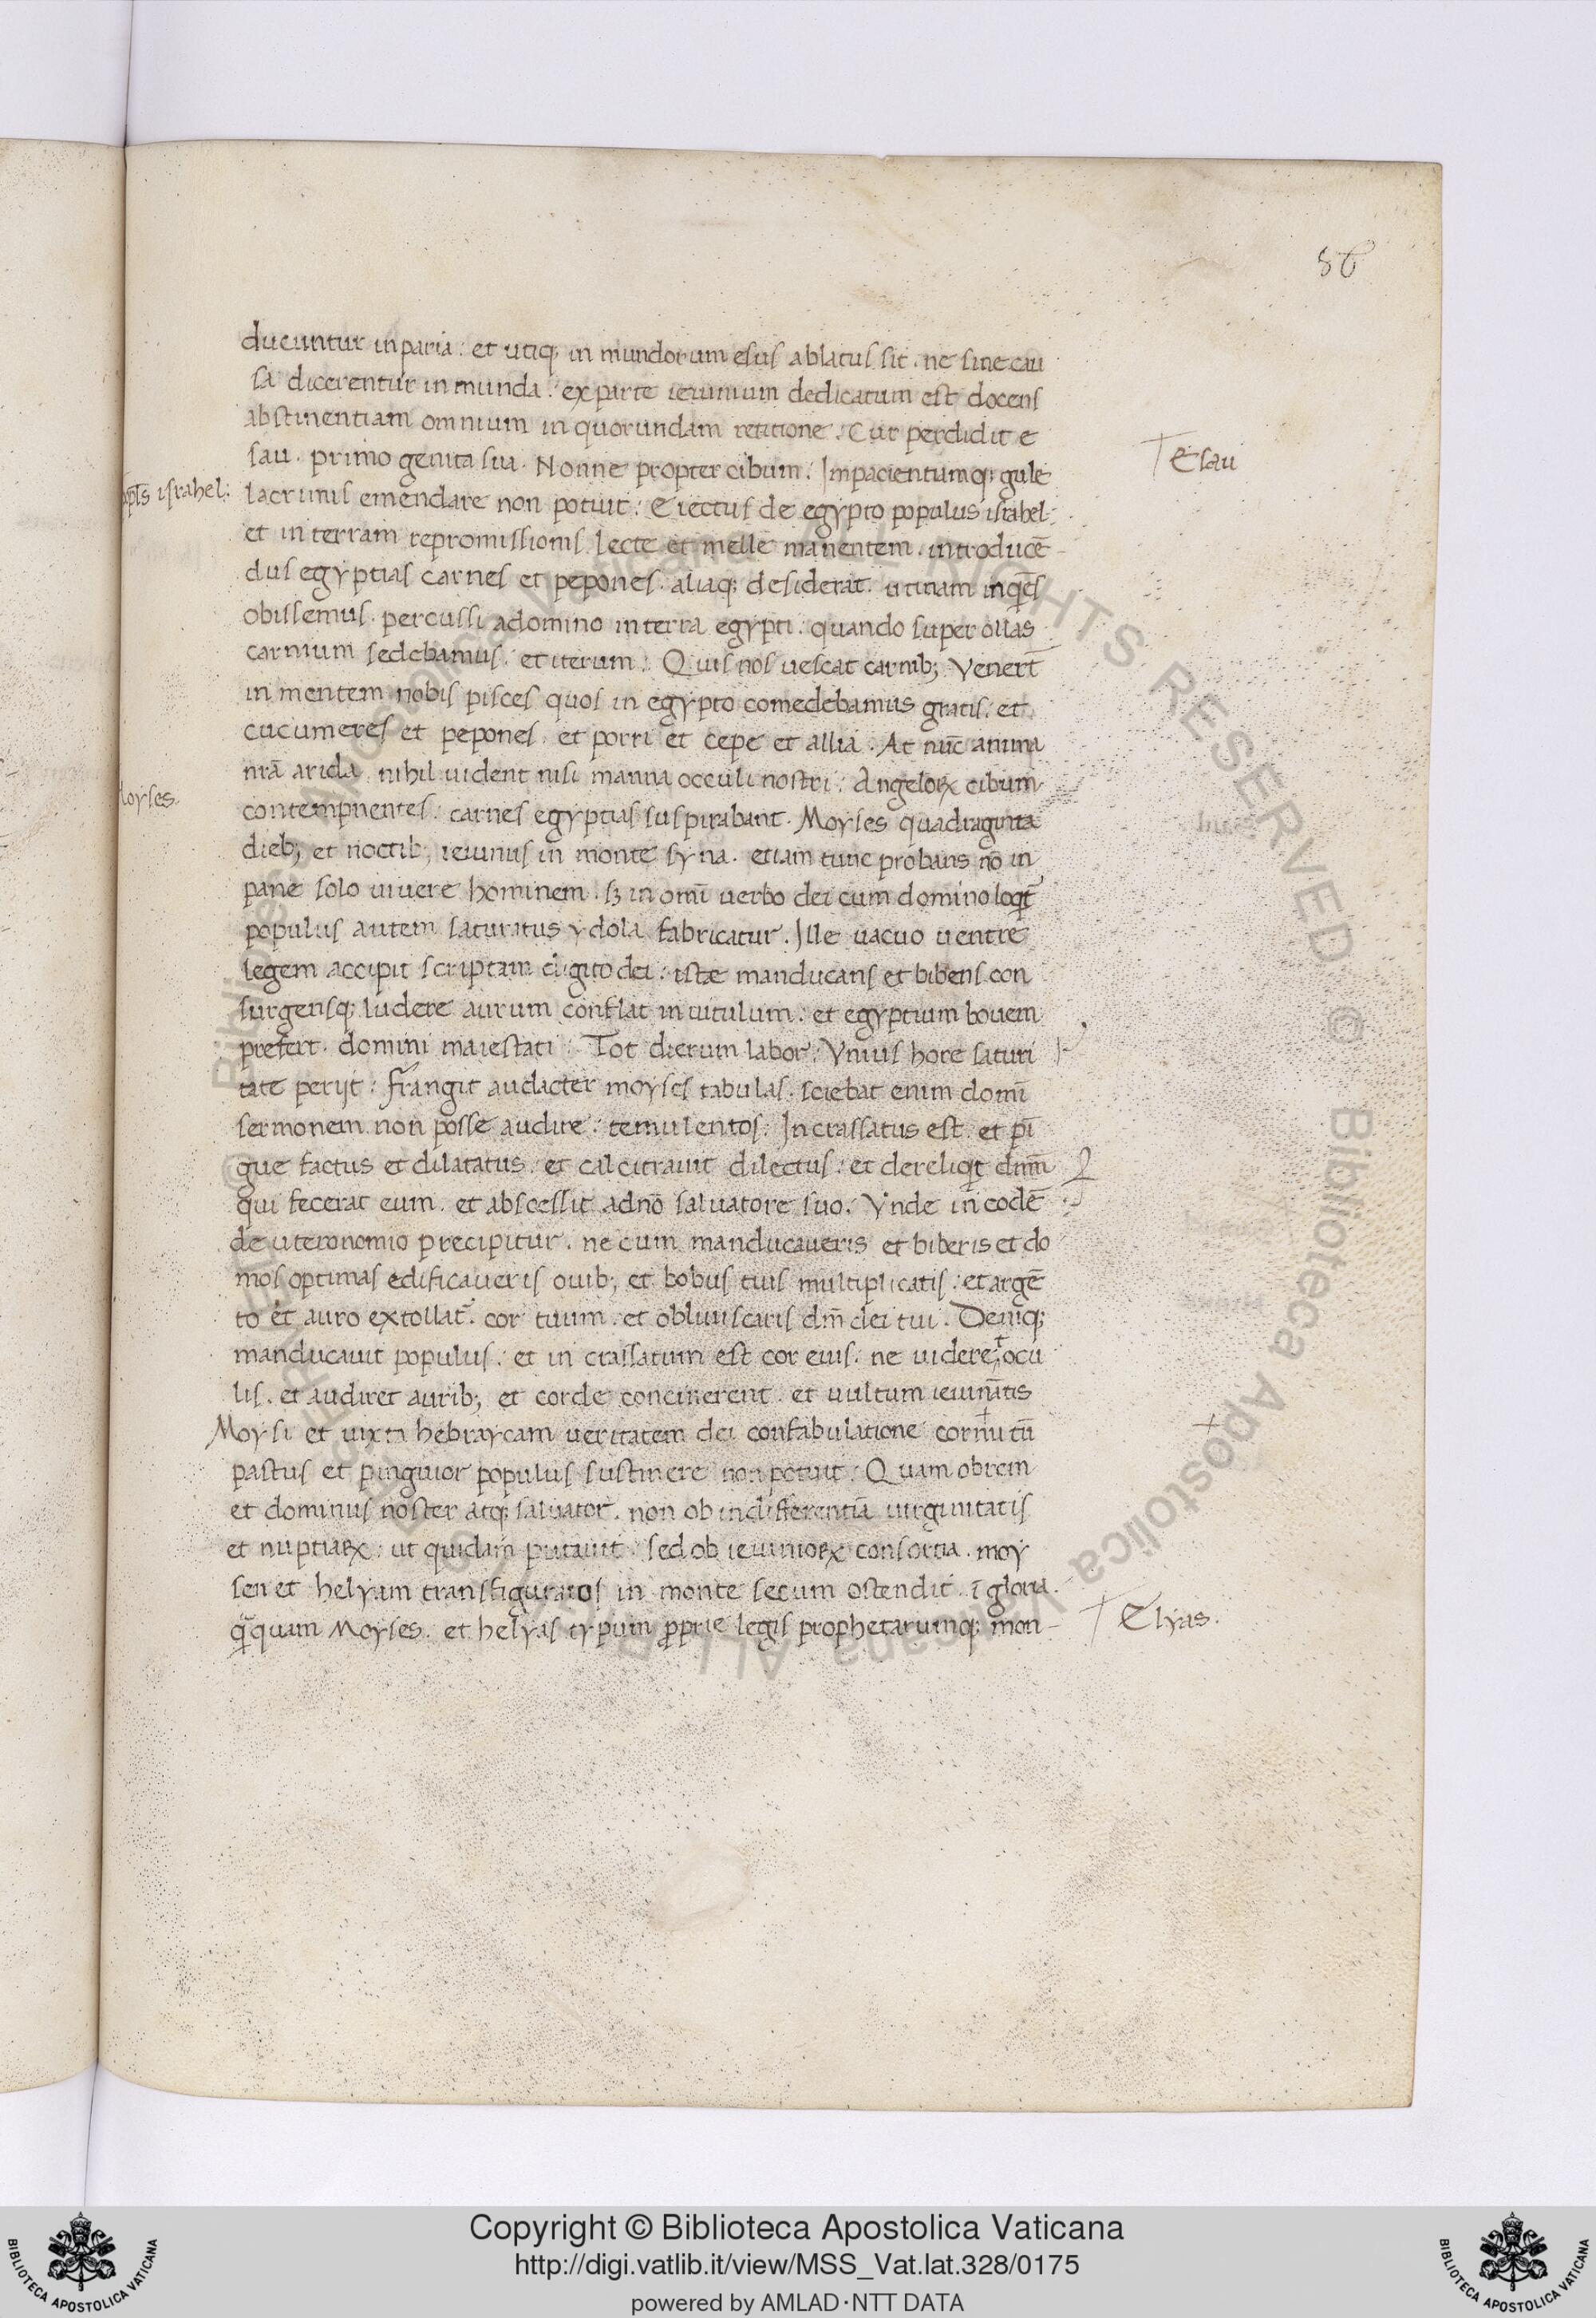 86
ducuntur in paria : et utiq; in mundorum esus ablatus sit . ne sine cau
sa dicerentur in munda : ex parte ieiunium dedicatum est docens
abstinentiam omnium in quorundam retitione . Cur perdidit e
sau . primo genita sua . Nonne propter cibum . Impacientiamq; gule
Esau
lacrimis emendare non potuit : Eiectus de egypto populus israhel .
ppl̄s israhel :
et in terram repromissionis . lecte et melle manentem . introducē
dus egyptias carnes et pepones . aliaq; desiderat . utinam inqēs
obissemus . percussi a domino in terra egypti . quando super ollas
carnium sedebamus . et iterum . Quis nos uescat carnib; Venert̄
in mentem nobis pisces quos in egypto comedebamus gratis . et
cucumeres et pepones . et porri et cepe et allia . At nūc anima
nrā arida . nihil uident nisi manna occuli nostri : Angeloꝝ cibum
loyses .
contempnentes : carnes egyptias suspirabant . Moyses quadraginta
dieb; et noctib; ieiunus in monte syna . etiam tunc probans nō in
pane solo uiuere hominem . sꝫ in omī uerbo dei cum domino loqt̄
populus autem saturatus ydola fabricatur . Ille uacuo uentre
legem accipit scriptam digito dei : iste manducans et bibens con
surgensq; ludere aurum conflat in uitulum . et egyptium bouem
prefert . domini maiestati : Tot dierum labor . Vnius hore saturi
tate perijt : frangit audacter moyses tabulas . sciebat enim domī
sermonem non posse audire . temulentos . Incrassatus est . et pī
gue factus et dilatatus . et calcitrauit dilectus : et dereliqt dnm̄
qui fecerat eum . et abscessit adnō saluatore suo . Vnde in eodē
deuteronomio precipitur . ne cum manducaueris et biberis et do
mos optimas edificaueris ouib; et bobus tuis multiplicatis : et argē
to et auro extollat̄ . cor tuum . et obliuiscaris dm̄ dei tui . Deniq;
manducauit populus . et in crassatum est cor eius . ne uideret ocu
lis . et audiret aurib; et corde concinerent . et uultum ieiunātis
Moysi et uixta hebraycam ueritatem dei confabulatione cornutū
pastus et pinguior populus sustinere non potuit . Quam obrem
et dominus noster atq; saluator . non ob indifferentiā uirginitatis
et nuptiaꝝ : ut quidam putauit . sed ob ieiunioꝝ consortia . moy
sen et helyam transfiguratos in monte secum ostendit . ī gloria .
q̄quam Moyses . et helyas typum ꝓprie legis prophetarumq; mon-
Elyas .
Copyright © Biblioteca Apostolica Vaticana
http://digi.vatlib.it/view/MSS_Vat.lat.328/0175
powered by AMLAD·NTT DATA